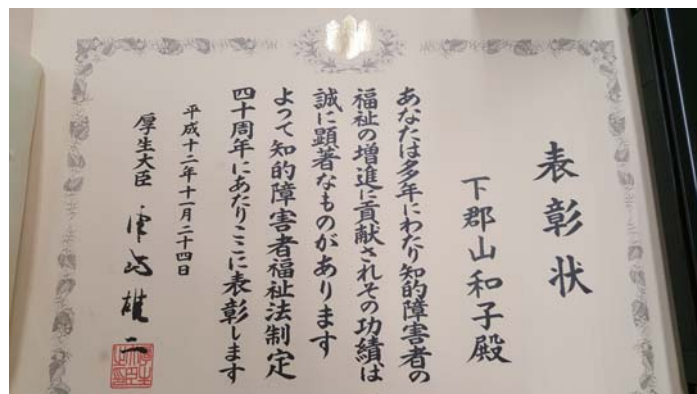 表彰状
下郡山和子殿
あなたは多年にわたり知的障害者の
福祉の増進に貢献されその功績は
誠に顕著なものがあります
よって知的障害者福祉法制定
四十周年にあたりここに表彰します
平成十二年十一月二十四日
厚生大臣 津島雄二